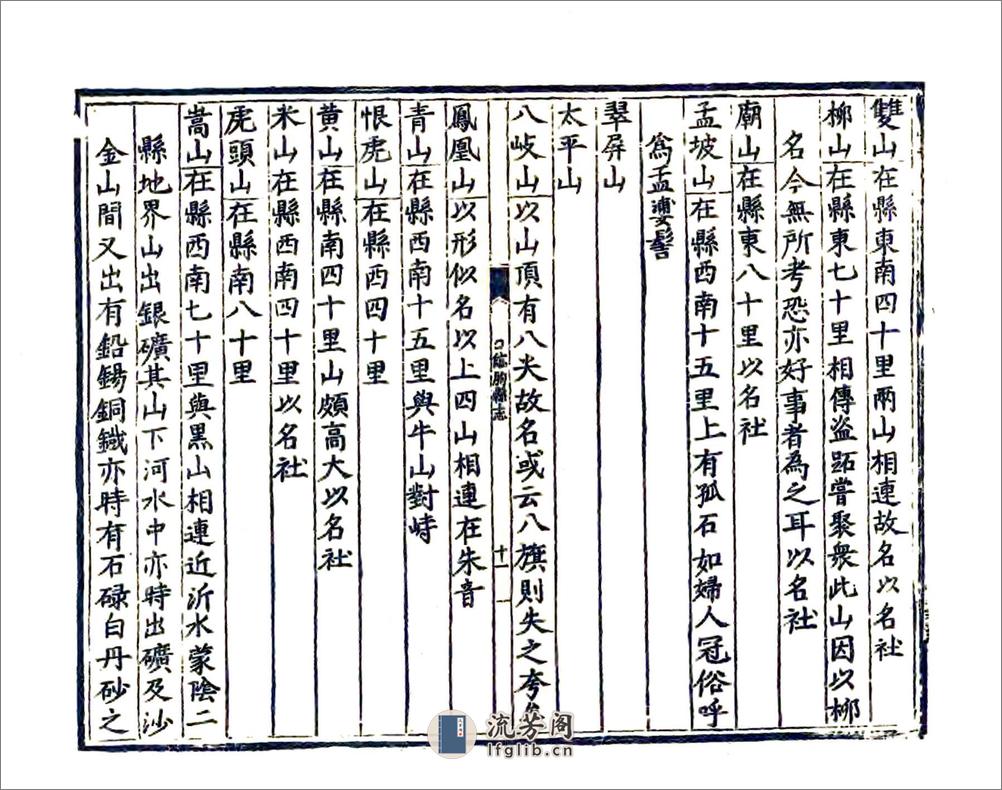 雙山在縣東南四十里兩山相連故名以名社
柳山在縣東七十里相傳盜跖嘗聚衆此山因以柳
名今無所考恐亦好事者為之耳以名社
廟山在縣東八十里以名社
孟坡山在縣西南十五里上有孤石如婦人冠俗呼
爲孟婆髻
翠屏山
太平山
八岐山以山頂有八尖故名或云八旗則失之夸
臨朐縣志
十一
鳳凰山以形似名以上四山相連在朱音
青山在縣西南十五里與牛山對峙
恨虎山在縣西四十里
黄山在縣南四十里山頗高大以名社
米山在縣西南四十里以名社
虎頭山在縣南八十里
嵩山在縣西南七十里與黑山相連近沂水蒙陰二
縣地界山出銀礦其山下河水中亦時出礦及沙
金山間又出有鉛錫銅鐡亦時有石碌白丹砂之
流芳阁
lfglib.cn